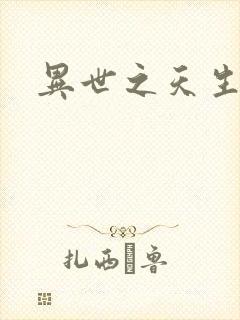 異世之天生
扎西�魯